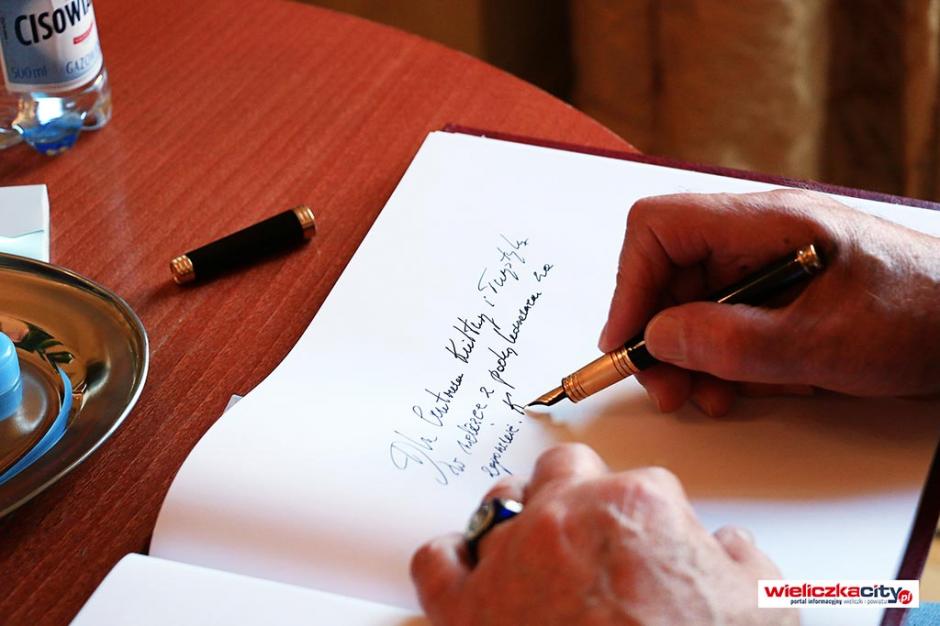 CISOWIA
500ml GAZOW
Dla Centrum Kultury i Turystyki
w Wieliczce z podziękowaniem za
wieliczkacity.pl
portal informacyjny wieliczki i powiatu